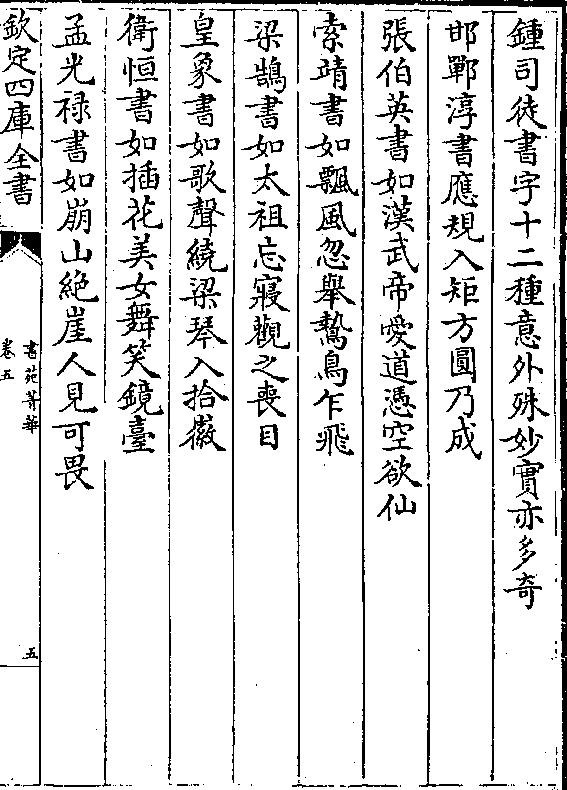 鍾司徒書字十二種意外殊妙實亦多奇
邯鄲淳書應規入矩方圓乃成
張伯英書如漢武帝愛道憑空欲仙
索靖書如飄風忽舉鷙鳥乍飛
梁鵠書如太祖忘寢觀之喪目
皇象書如歌聲繞梁琴人捨徽
衛恒書如插花美女舞笑鏡臺
孟光禄書如崩山絶崖人見可畏
欽定四庫全書
書苑菁華
卷五
五